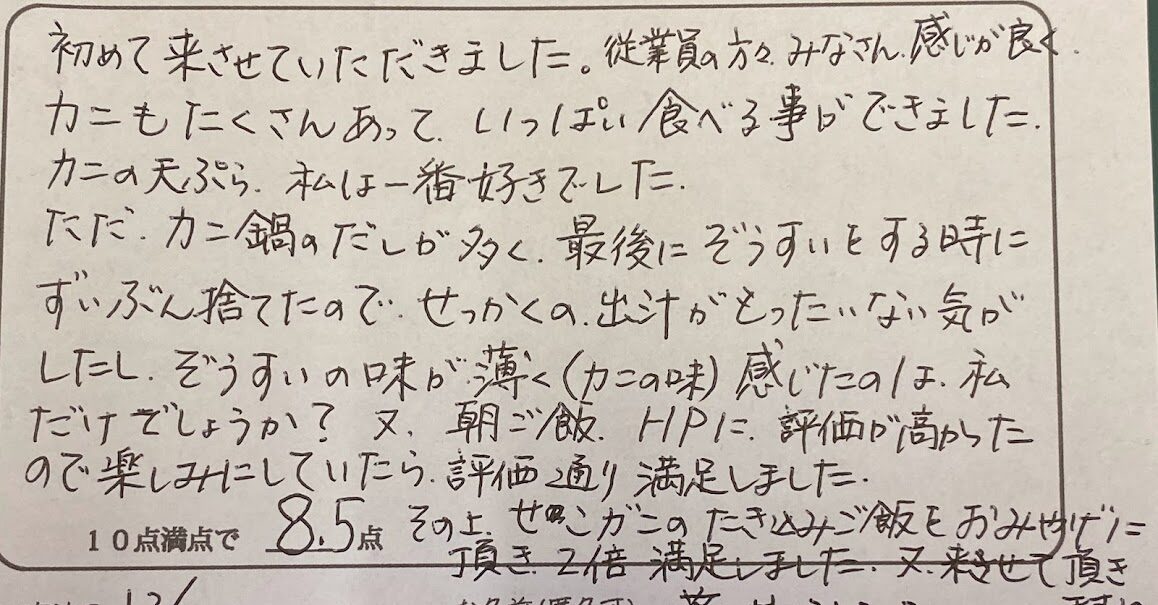 初めて来させていただきました。従業員の方々、みなさん、感じが良く、
カニもたくさんあって、いっぱい食べる事ができました。
カニの天ぷら、私は一番好きでした。
ただ、カニ鍋のだしが多く、最後にぞうすいをする時に
ずいぶん捨てたので、せっかくの、出汁がもったいない気が
したし、ぞうすいの味が薄く(カニの味)感じたのは、私
だけでしょうか? 又、朝ご飯、HPに、評価が高かった
ので楽しみにしていたら、評価通り満足しました。
10点満点で 8.5点 その上、せこがにのたき込みご飯をおみやげに
頂き、2倍満足しました。又、来させて頂き